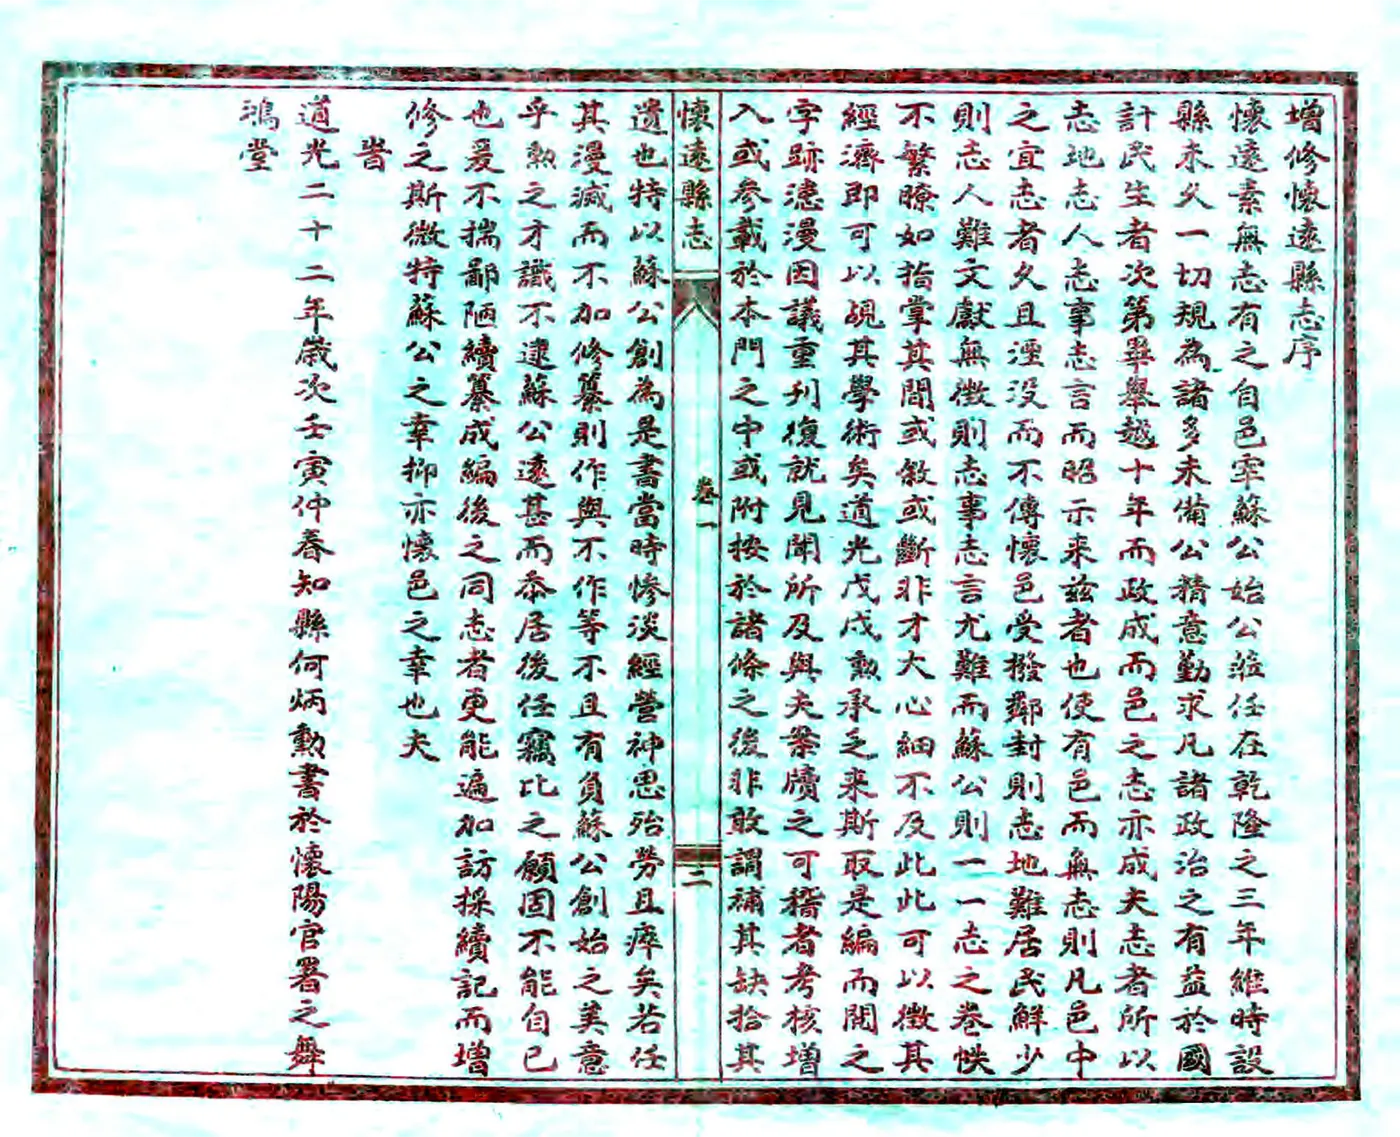 增修懷遠縣志序
懷遠素無志有之自邑宰蘇公始公蒞任在乾隆之三年維時設
縣未久一切規為諸多未備公精意勤求凡諸政治之有益於國
計民生者次第畢舉越十年而政成而邑之志亦成夫志者所以
志地志人志事志言而昭示来茲者也使有邑而無志則凡邑中
之宜志者久且湮没而不傳懷邑受撥鄰封則志地難居民鮮少
則志人難文獻無徵則志事志言尤難而蘇公則一一志之卷帙
不繁瞭如指掌其間或敘或斷非才大心細不及此此可以徵其
經濟即可以覘其學術矣道光戊戌勳承乏来斯取是編而閱之
字跡漶漫因議重刊復就見聞所及與夫案牘之可稽者考核增
入或參載於本門之中或附按於諸條之後非敢謂補其缺拾其
懷遠縣志
卷一
三
遺也特以蘇公創為是書當時慘淡經營神思殆勞且瘁矣若任
其漫滅而不加修纂則作與不作等不且有負蘇公創始之美意
乎勳之才識不逮蘇公遠甚而忝居後任竊比之願固不能自已
也爰不揣鄙陋續纂成編後之同志者更能遍加訪採續記而增
修之斯微特蘇公之幸抑亦懷邑之幸也夫
旹
道光二十二年歲次壬寅仲春知縣何炳勳書於懷陽官署之舞
鴻堂